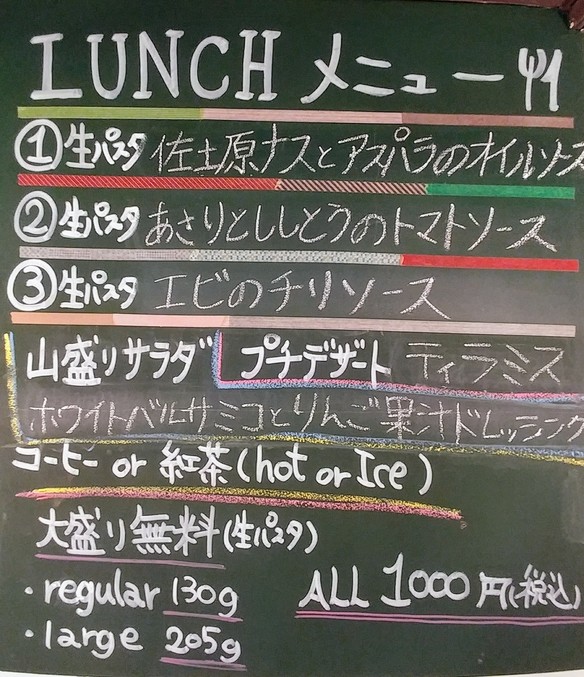 LUNCH メニュー
①生パスタ 佐土原ナスとアスパラのオイルソース
②生パスタ あさりとししとうのトマトソース
③生パスタ エビのチリソース
山盛りサラダ プチデザート ティラミス
ホワイトバルサミコとりんご果汁ドレッシング
コーヒー or 紅茶(hot or Ice)
大盛り無料(生パスタ)
・regular 130g ALL 1000円(税込)
・large 205g